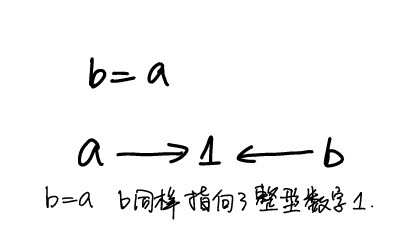 b=a
a→1←b
b=a b同样指向了整型数字1.